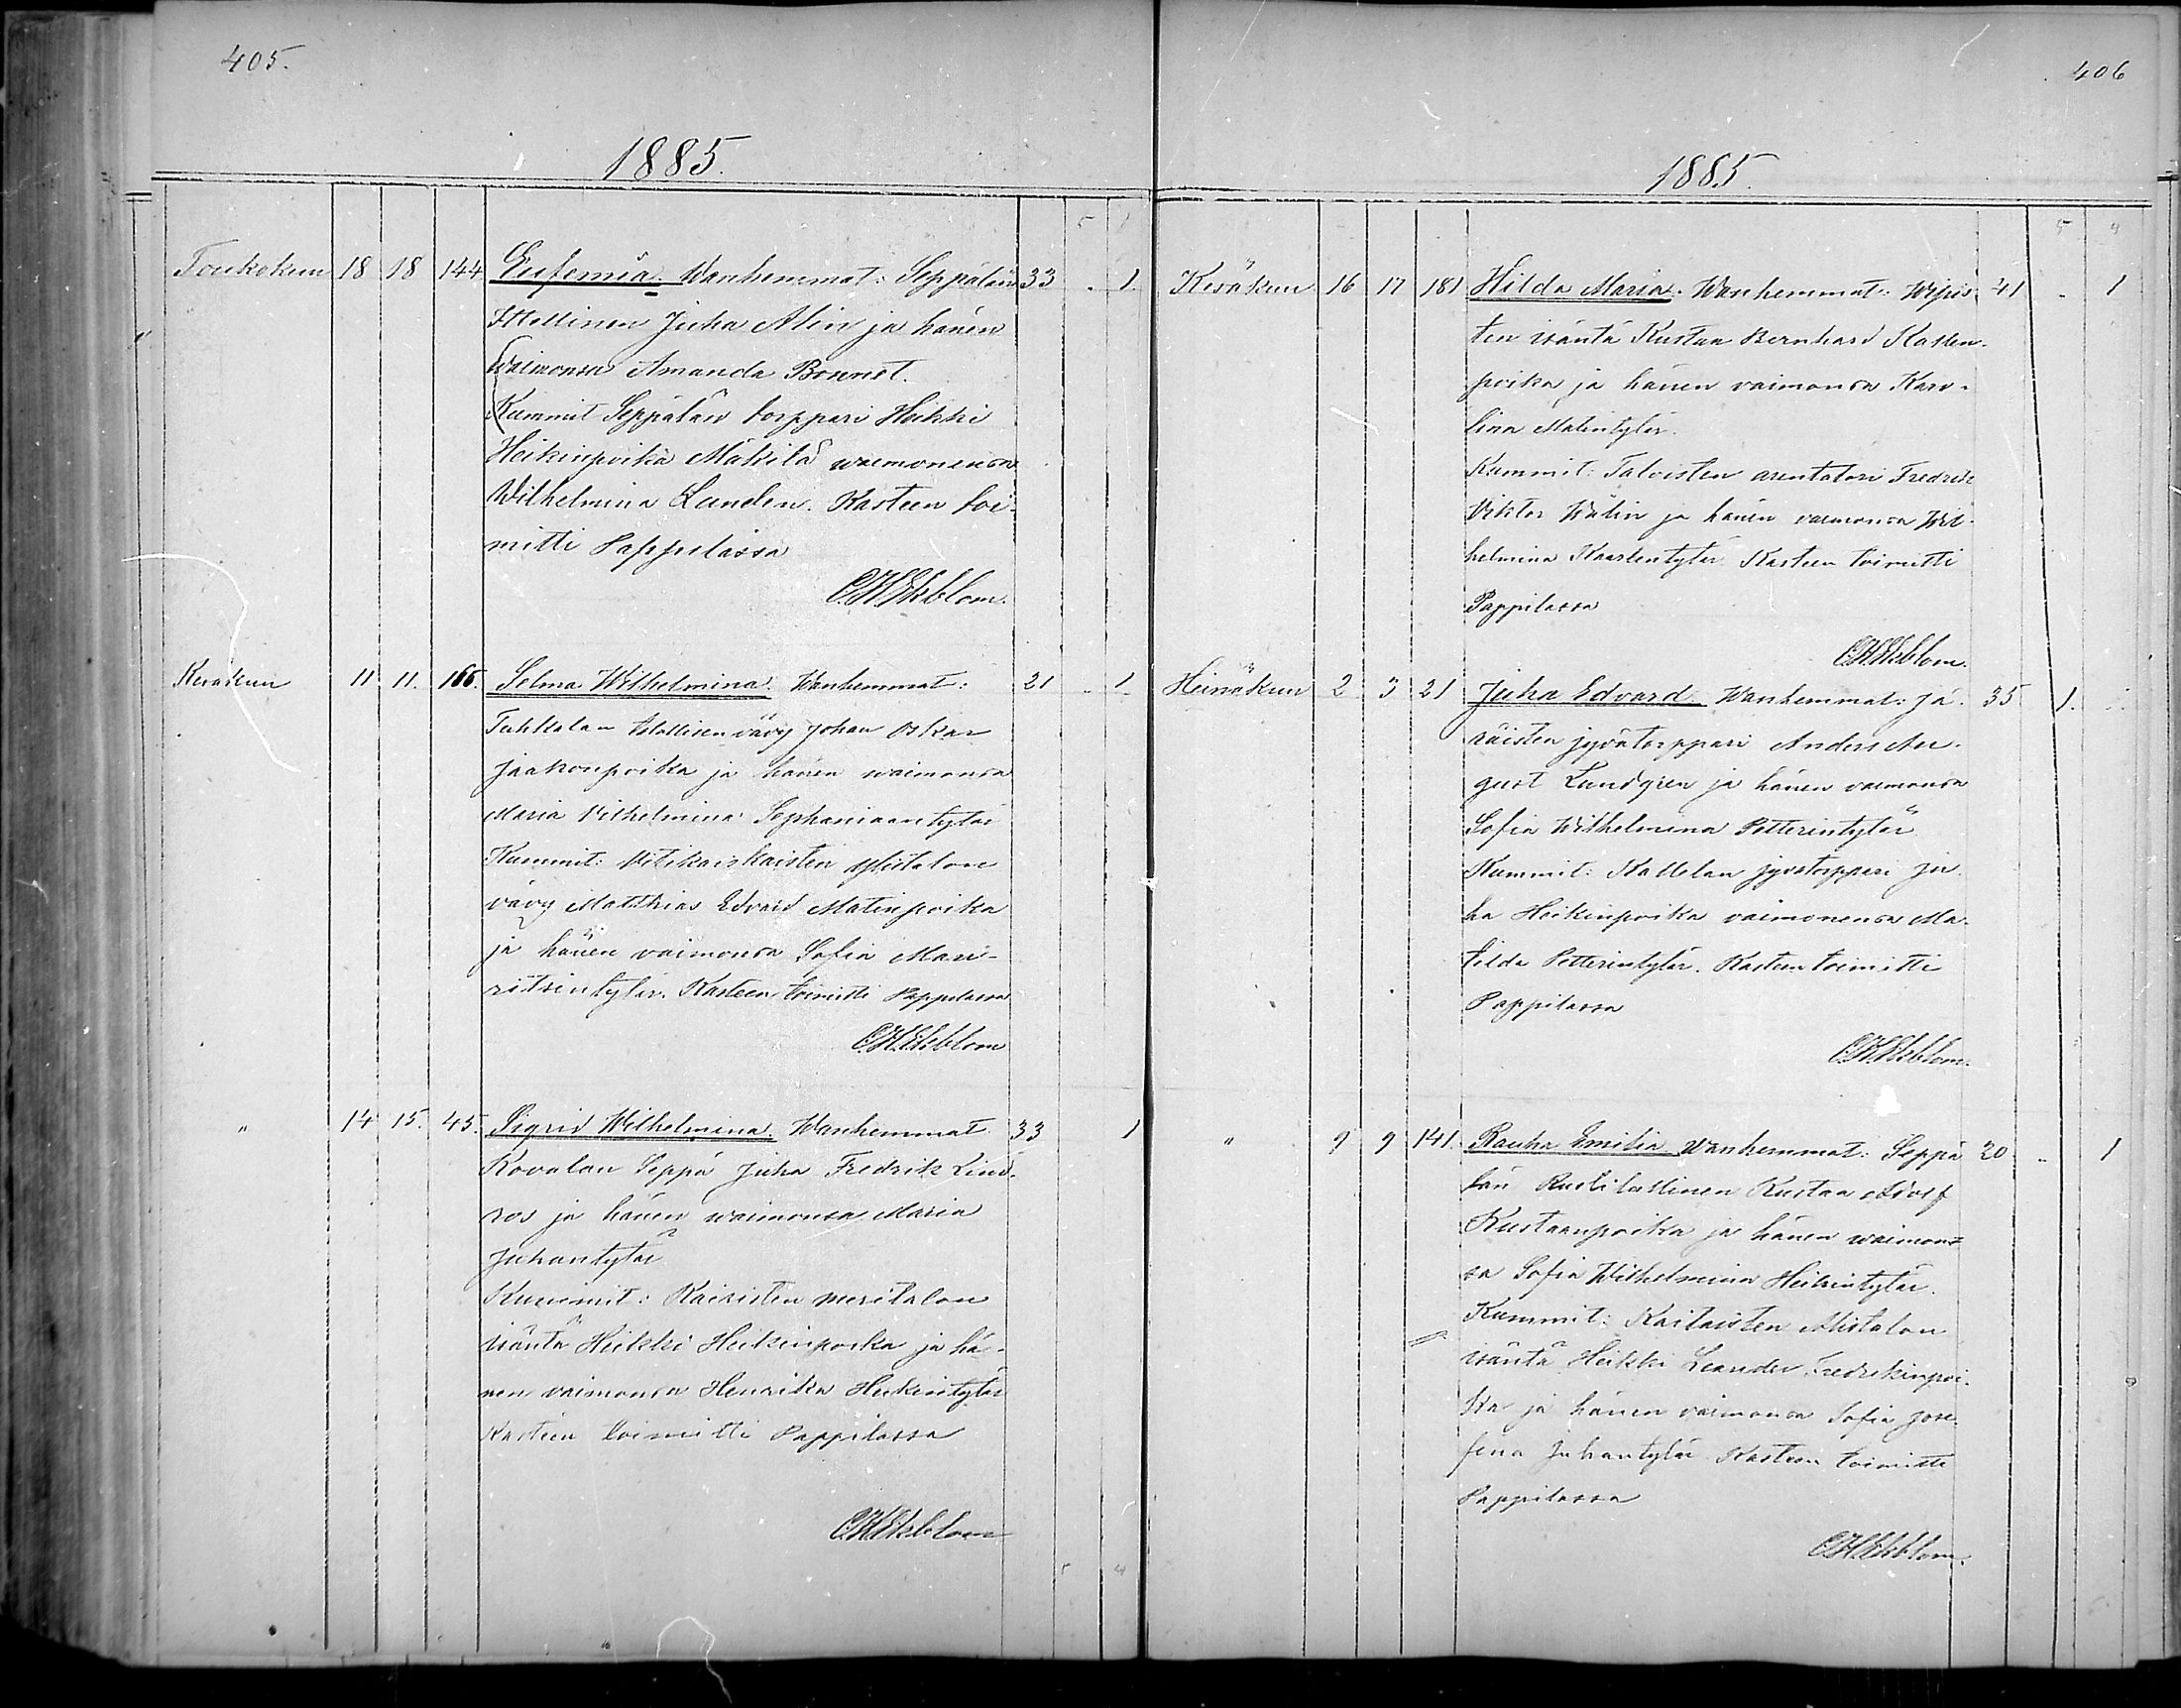 405.
1885.
5 1
Toukokuun 18 18 144 Eufemia. Wanhemmat: Seppälän 33 . 1.
Juha Alin ja hänen
waimonsa Amanda
Kummit Seppälän torppari Heikki
Heikinpoika Mäkilä waimonensa
Wilhelmina Lunden. Kasteen toi-
mitti Pappilassa
C.H.Ekblom.
Kesäkuun 11 11. 166. Selma Wilhelmina. Wanhemmat: 21 - 1.
Tuhkalan vävy Johan Oskar
Jaakonpoika ja hänen waimonsa
Maria Vilhelmina Sephaniaantytär
Kummit: Ylistalon
vävy Matthias Edvard Matinpoika
ja hänen vaimonsa Sofia Mau-
ritsintytär. Kasteen toimitti Pappilassa
C.H.Ekblom
" 14 15. 45. Sigrid Wilhelmina. Wanhemmat 33 1
Kovalan Seppä Juha Fredrik Lind-
ros ja hänen waimonsa Maria
Juhantytär
Kummit: Kairisten meritalon
isäntä Heikki Heikinpoika ja hä-
nen vaimonsa Henrika Heikintytär
Kasteen toimitti Pappilassa
C.H.Ekblom
5 4
406
1885.
5 4
Kesäkuun 16 17 181 Hilda Maria. Wanhemmat: Wipis 41 . 1
ten isäntä Kustaa Bernhard Kallen-
poika ja hänen vaimonsa Karo-
lina Matintytär.
Kummit: Taloisten arentatori Fredrik
Viktor Wälin ja hänen vaimonsa Wil-
helmina Kaarlentytär Kasteen toimitti
Pappilassa
C.H.Ekblom.
Heinäkuun 2 3 21 Juha Edvard. Wanhemmat: Jä- 35 1.
räisten jyvätorppari Anders Au-
gust Lundgren ja hänen vaimonsa
Sofia Wilhelmina Petterintytär
Kummit: Kallelan jyvätorppari Ju-
ha Heikinpoika vaimonensa Ma-
tilda Petterintytär. Kasteen toimitti
Pappilassa
C.H.Ekblom.
" 9 9 141. Rauha Emilia Wanhemmat: Seppä 20 . 1
län Rustitallinen Kustaa Adolf
Kustaanpoika ja hänen waimon-
sa Sofia Wilhelmina Heikintytär.
Kummit: Kaitaisten Alistalon
isäntä Heikki Leander Fredrikinpoi-
ka ja hänen vaimonsa Sofia Jose-
fina Juhantytär Kasteen toimitti
Pappilassa
C.H.Ekblom.